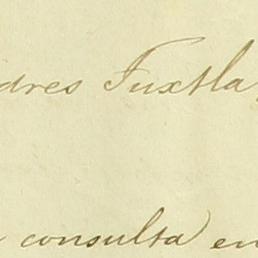 dres Tuxtla
consulta en